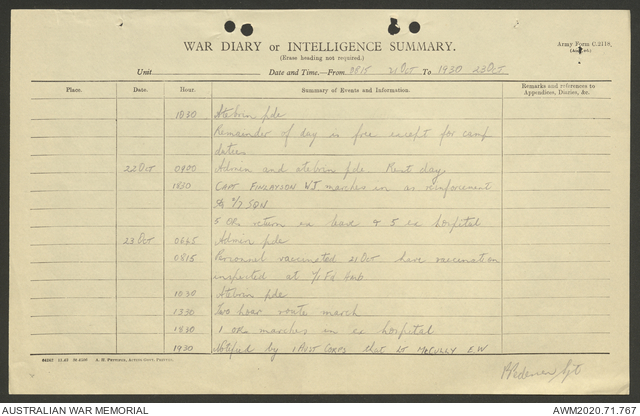 WAR DIARY or INTELLIGENCE SUMMARY.
(Erase heading not required.)
Army Form C.2118.
Unit Date and Time.—From 0815 21 Oct To 1930 23 Oct
Place. Date. Hour. Summary of Events and Information. Remarks and references to Appendices, Diaries, &c.
1830 Atebrin pde
Remainder of day is free except for camp
duties
22 Oct 0900 Admin and atebrin pde. Rest day.
1830 CAPT FINLAYSON WJ marches in as reinforcement
2/7 SQN
5 ORs return ex leave & 5 ex hospital
23 Oct 0645 Admin pde
0815 Personnel vaccinated 21 Oct have vaccination
inspected at Fd. Amb
1030 Atebrin pde
1330 Two hour route march
1830 1 ORs marches in ex hospital
1930 Notified by 1 Aust Corps that Lt McCULLY E.W
A. H. Pettifer, Government Printer.
AUSTRALIAN WAR MEMORIAL
AWM2020.71.767